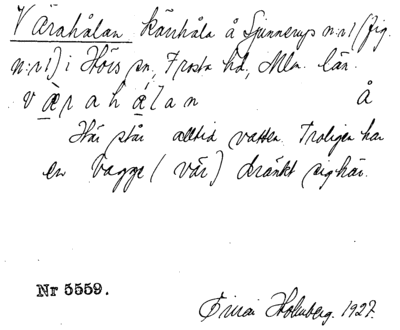 Värahålan kärrhåla å Sjunnerup n:r 1 (fig.
n:r 1) i Hörs sn, Frosta hd, Mlm. län.
v æ̀ r a h á l a n å
Här står alltid vatten. Troligen har
en bagge (vär) dränkt sig här.
Nr 5559.
Holmberg. 1927.